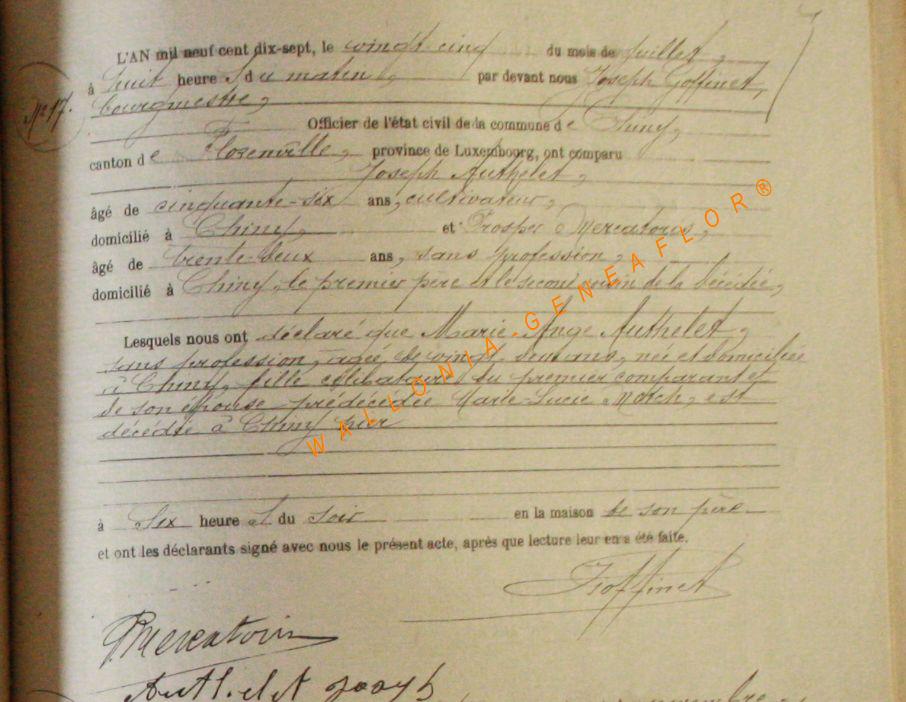 L'AN mil neuf cent dix-sept, le vingt-cinq du mois de juillet,
à huit heures du matin, par devant nous Joseph Goffinet,
N° 17.
bourgmestre,
Officier de l'état civil de la commune de Chiny,
canton de Florenville, province de Luxembourg, ont comparu
Joseph Authelet,
âgé de cinquante-six ans, cultivateur,
domicilié à Chiny, et Prosper Mercatoris,
âgé de trente-deux ans, sans profession,
domicilié à Chiny, le premier père et le second de la décédée,
Lesquels nous ont déclaré que Marie Ange Authelet,
sans profession, agée de vingt- ans, née et domiciliée
à Chiny, fille célibataire du premier comparant et
de son épouse prédécédée Marie-Lucie, est
décédée à Chiny hier
à six heures du soir en la maison de son père
et ont les déclarants signé avec nous le présent acte, après que lecture leur en a été faite.
Goffinet
PMercatoris
Authelet Joseph
WALLONIA-GENEAFLOR®